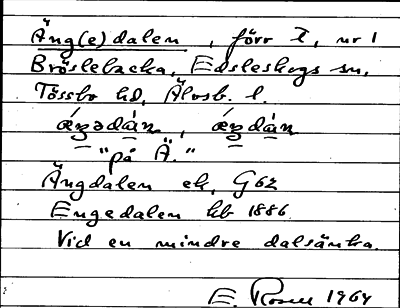 Äng(e)dalen, förr t, nr 1
Bräcklebacka, Edsleskogs sn,
Tössbo hd, Älvsb. l.
"på Ä."
Ängdalen ek, G62
Engedalen kb 1886
Vid en mindre dalsänka.
E. Rosell 1964